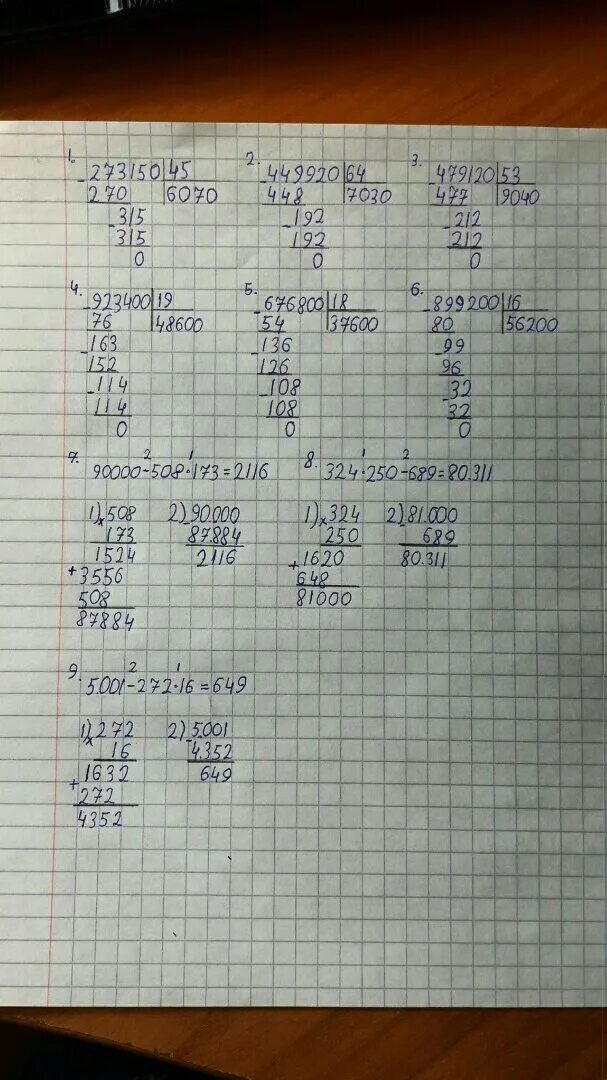 1. 273150 45 2. 449920 64 3. 479120 53
270 6070 448 7030 477 9040
315 192 212
315 192 212
0 0 0
4. 923400 19 5. 676800 18 6. 899200 16
76 48600 54 37600 80 56200
163 136 99
152 126 96
114 108 32
114 108 32
0 0 0
2 1 1 2
7. 90000-508·173=2116 8. 324·250-689=80.311
1) × 508 2) - 90.000 1) × 324 2) - 81.000
173 87.884 250 689
1524 2116 + 1620 80.311
+ 3556 648
508 81000
87884
2 1
9. 5.001-272·16=649
1) × 272 2) - 5.001
16 4.352
1632 649
+ 272
4352